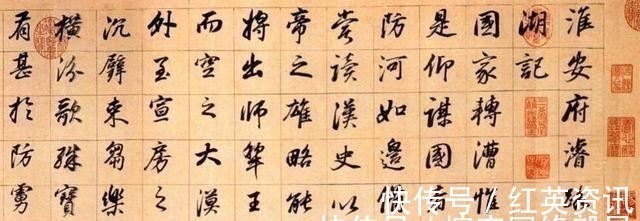 淮安府濬
湖記
國家轉漕惟
是仰謀國
防河如邊
嘗讀漢史以
帝之雄略能
將出師犂王
而空之大漠
外至宣房之
沉璧來芻樂
橫汾歌殊寶
有甚於防虜
快传号/红英资讯